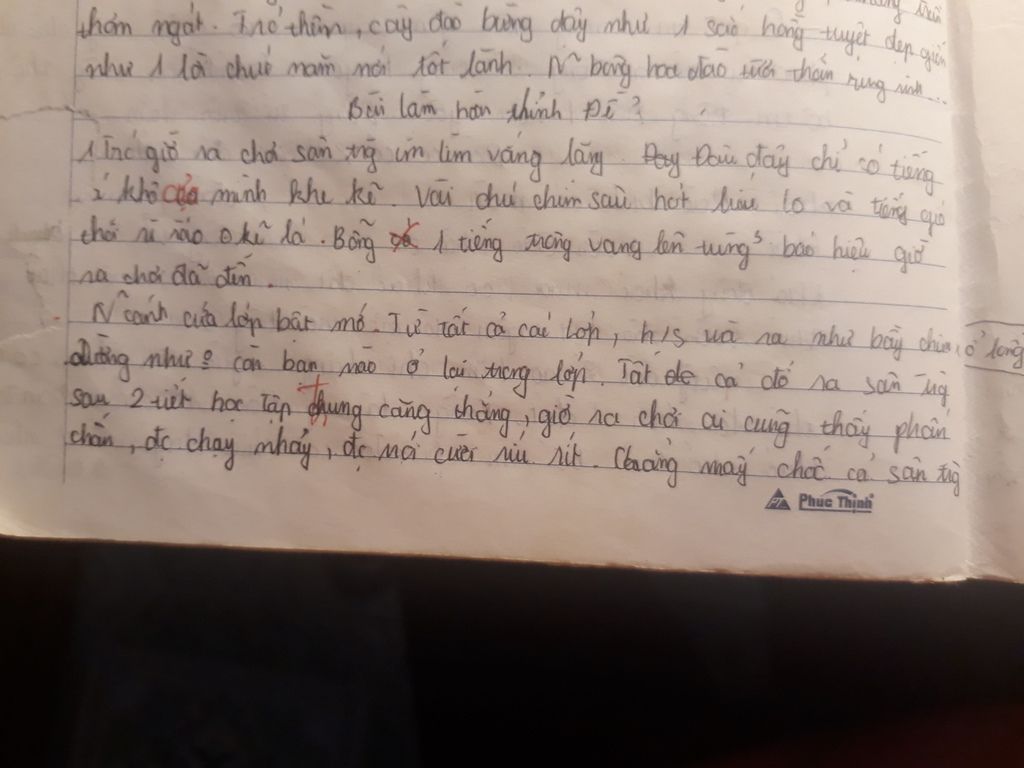 thơm ngát. Trổ thêm, cây đào bừng dậy như 1 sắc hồng tuyệt đẹp giống
như 1 lời chúc năm mới tốt lành. N~ bông hoa đào tươi thắm rung rinh...
Bài làm hoàn thỉnh Đề 2
1 Trc giờ ra chơi sân trg im lìm vắng lặng. Đâu đây chỉ có tiếng
khô của mình khe kẽ. Vài chú chim sâu hót líu lo và tiếng gió
thổi rì rào kẽ lá. Bỗng 1 tiếng trống vang lên tùng³ báo hiệu giờ
ra chơi đã đến.
N~ cánh cửa lớp bật mở. Từ tất cả các lớp, h/s ùa ra như bầy chim ổ lồng
dường như 0 còn bạn nào ở lại trong lớp. Tất cả đổ ra sân trg
sau 2 tiết học tập trung căng thẳng, giờ ra chơi ai cũng thấy phấn
chấn, đc chạy nhảy, đc nói cười ríu rít. Chẳng mấy chốc cả sân trg
PT Phuc Thinh